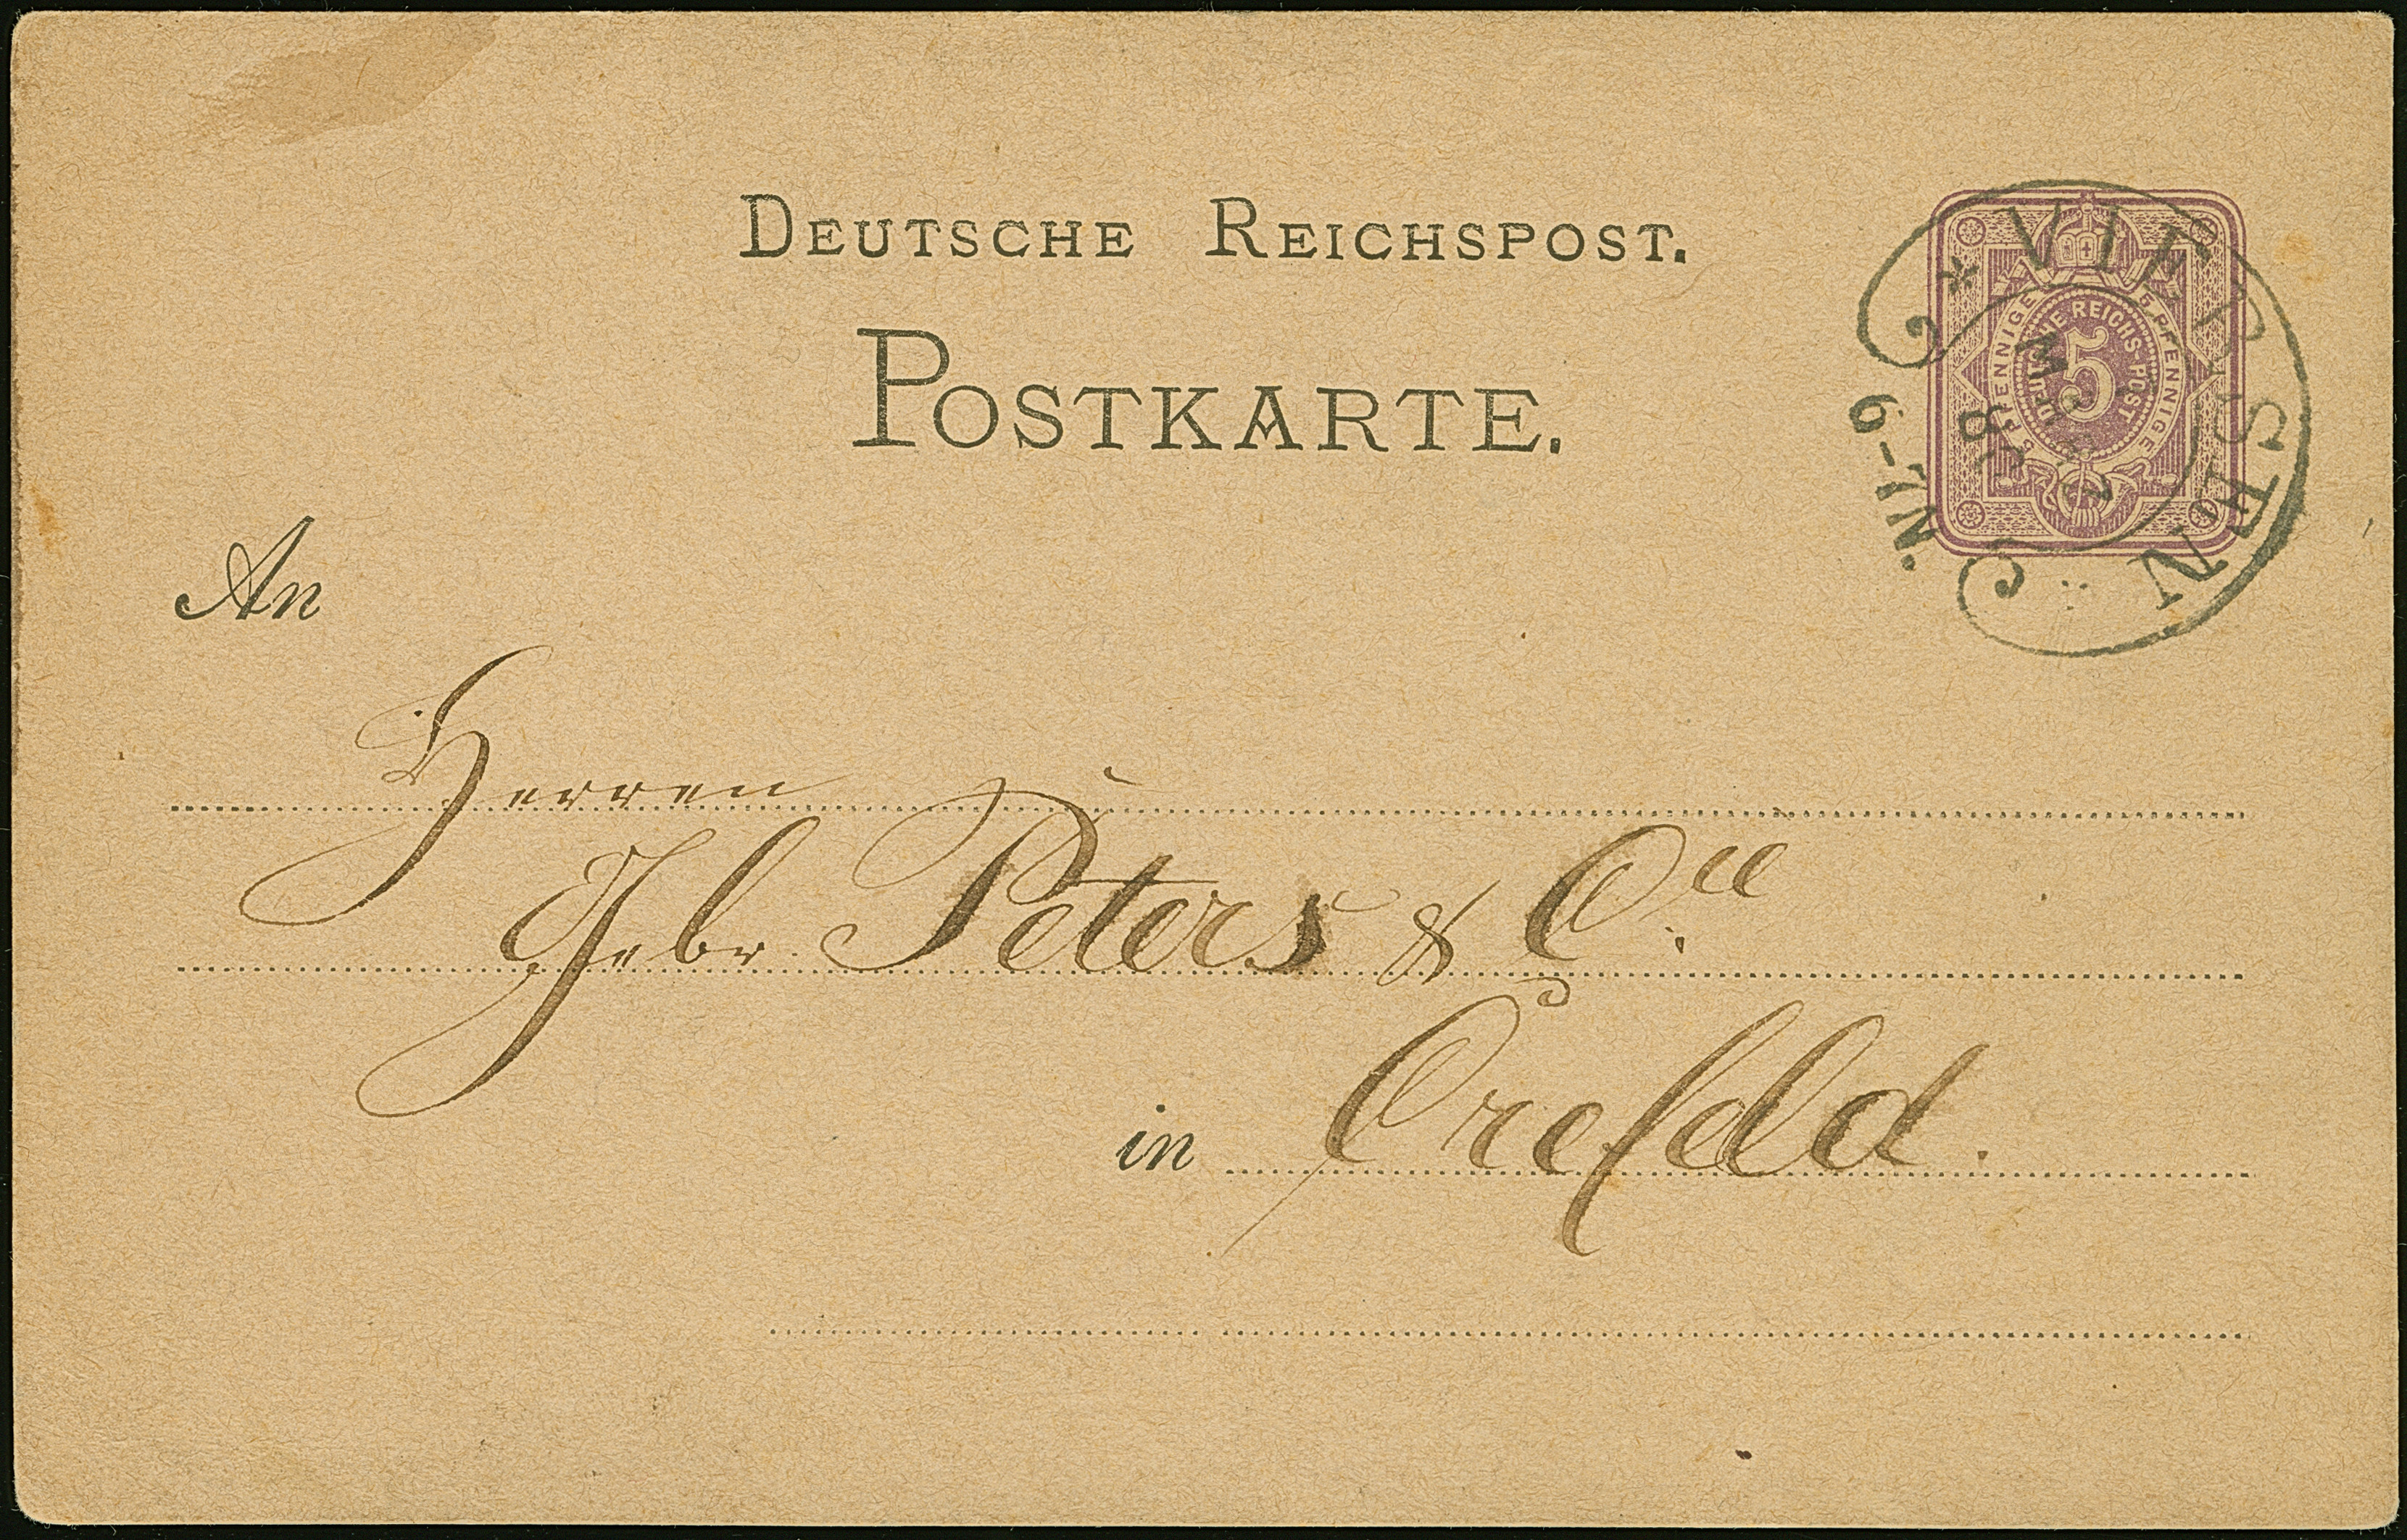 DEUTSCHE REICHSPOST.
POSTKARTE.
5 PFENNIGE 5 PFENNIGE
DEUTSCHE REICHS-POST
5
* VIERSEN
6-7N.
An
Herren
Gebr Peters & C.ie
in Crefeld.